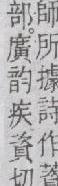 師所據詩作薋
部。廣韵疾資切